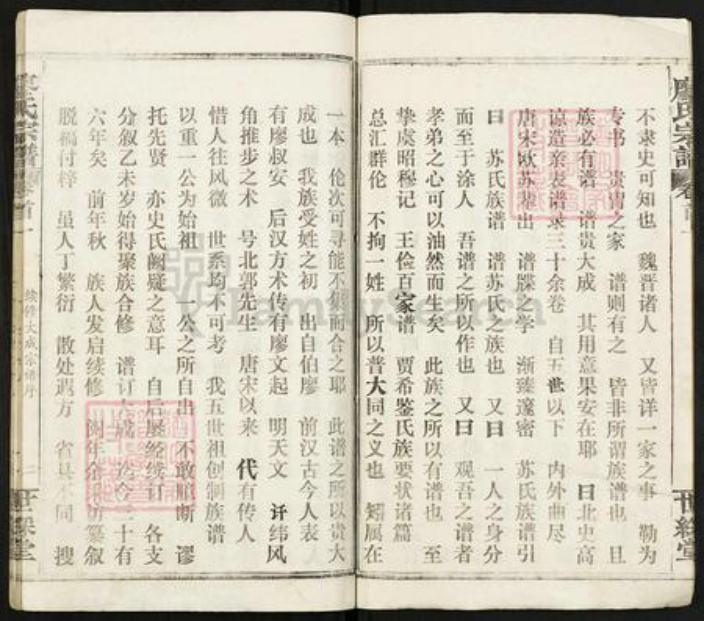 廖氏宗譜 卷首一
不隶史可知也 魏晋诸人 又皆详一家之事 勒为
专书 贵胄之家 谱则有之 皆非所谓族谱也 且
族必有谱 谱贵大成 其用意果安在耶 曰北史高
谅造亲表谱录三十余卷 自五世以下 内外曲尽
唐宋欧苏辈出 谱牒之学 渐臻邃密 苏氏族谱引
曰 苏氏族谱 谱苏氏之族也 又曰 一人之身分
而至于涂人 吾谱之所以作也 又曰 观吾之谱者
孝弟之心可以油然而生矣 此族之所以有谱也 至
挚虞昭穆记 王俭百家谱 贾希鉴氏族要状诸篇
总汇群伦 不拘一姓 所以普大同之义也 矧属在
世綵堂
一本 伦次可寻能不 而合之耶 此谱之所以贵大
成也 我族受姓之初 出自伯廖 前汉古今人表
有廖叔安 后汉方术传有廖文起 明天文 谶纬风
角推步之术 号北郭先生 唐宋以来 代有传人
惜人往风微 世系均不可考 我五世祖创制族谱
以重一公为始祖 一公之所自出 不敢臆断 谬
托先贤 亦史氏阙疑之意耳 自后屡经续订 各支
分叙乙未岁始得聚族合修 谱订大成 迄今三十有
六年矣 前年秋 族人发启续修 纂叙
脱稿付梓 虽人丁繁衍 散处遐方 省县不同 搜
续修大成宗谱序 二
廖氏宗譜 卷首一
世綵堂
FamilySearch